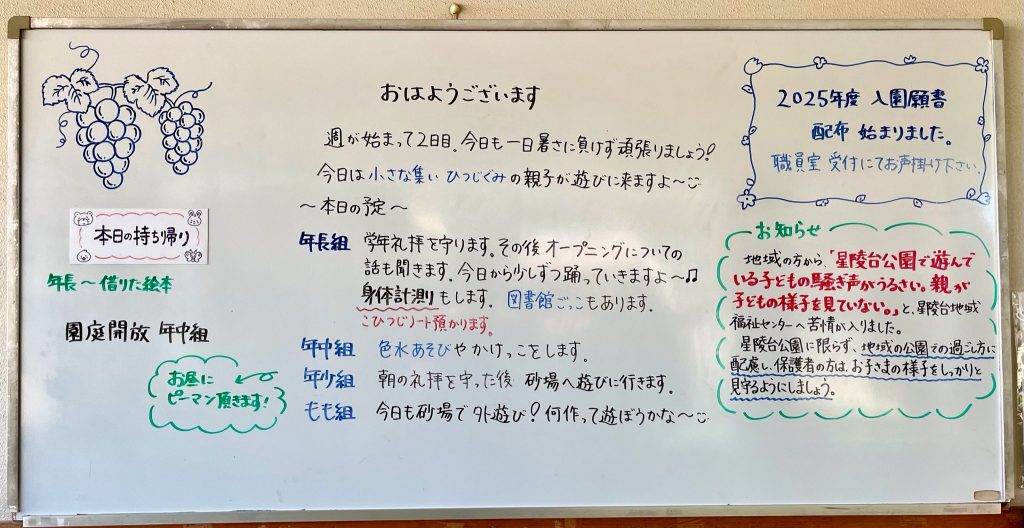 おはようございます
週が始まって2日目。今日も一日暑さに負けず頑張りましょう!
今日は小さな集い ひつじぐみの親子が遊びに来ますよ〜
〜本日の予定〜
年長組 学年礼拝を守ります。その後 オープニングについての
話も聞きます。今日から少しずつ踊っていきますよ〜♫
身体計測りもします。 図書館ごっこもあります。
こひつじノート預かります。
年中組 色水あそびやかけっこをします。
年少組 朝の礼拝を守った後 砂場へ遊びに行きます。
もも組 今日も砂場で外遊び!何作って遊ぼうかな〜
本日の持ち帰り
年長〜借りた絵本
園庭開放 年中組
お昼に
ピーマン頂きます!
2025年度 入園願書
配布 始まりました。
職員室 受付にてお声掛け下さい。
お知らせ
地域の方から、「星陵台公園で遊んで
いる子どもの騒ぎ声がうるさい。親が
子どもの様子を見ていない。」と、星陵台地域
福祉センターへ苦情が入りました。
星陵台公園に限らず、地域の公園での過ごし方に
配慮し、保護者の方は、お子さまの様子をしっかりと
見守るようにしましょう。